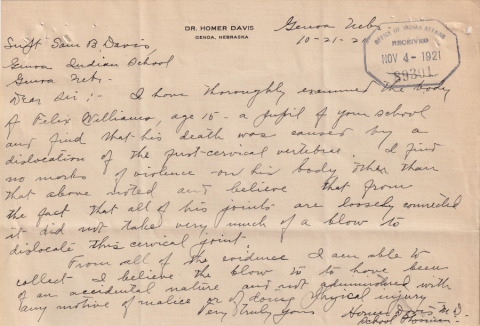 DR. HOMER DAVIS
GENOA, NEBRASKA
Genoa Nebr
10-21-21
OFFICE OF INDIAN AFFAIRS
RECEIVED
NOV 4 - 1921
89301
Supt Sam B. Davis,
Genoa Indian School
Genoa Nebr.
Dear Sir;- I have thoroughly examined the body
of Felix Williams, age 15 - a pupil of your school
and find that his death was caused by a
dislocation of the first cervical vertebrae. I find
no marks of violence on his body other than
that above noted and believe that from
the fact that all of his joints are loosely connected
it did not take very much of a blow to
dislocate this cervical joint.
From all of the evidence I am able to
collect I believe the blow to have been
of an accidental nature and not administered with
any motive of malice or of doing physical injury
Very truly yours
Homer Davis M.D.
School Physician